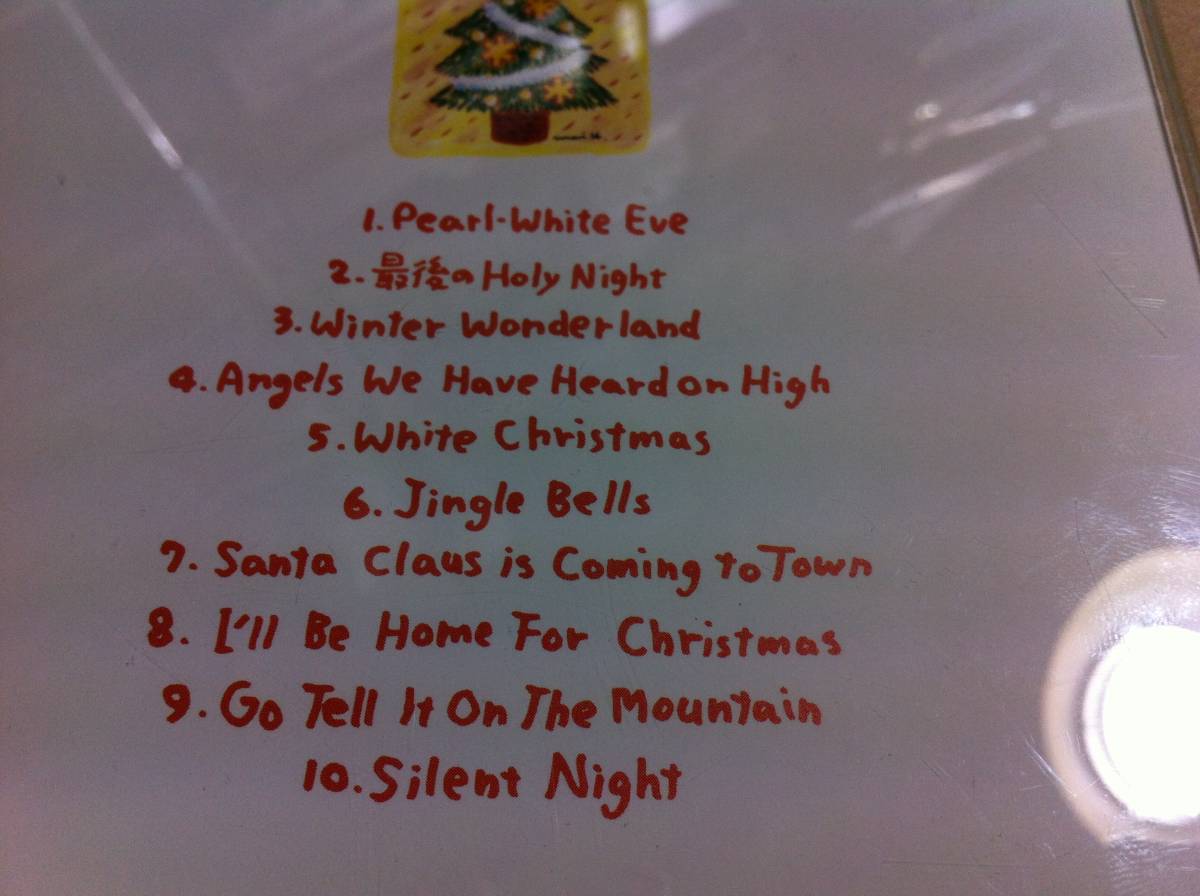 1. Pearl-White Eve
2. 最後の Holy Night
3. Winter Wonderland
4. Angels We Have Heard on High
5. White Christmas
6. Jingle Bells
7. Santa Claus is Coming to Town
8. I'll Be Home For Christmas
9. Go Tell It On The Mountain
10. Silent Night